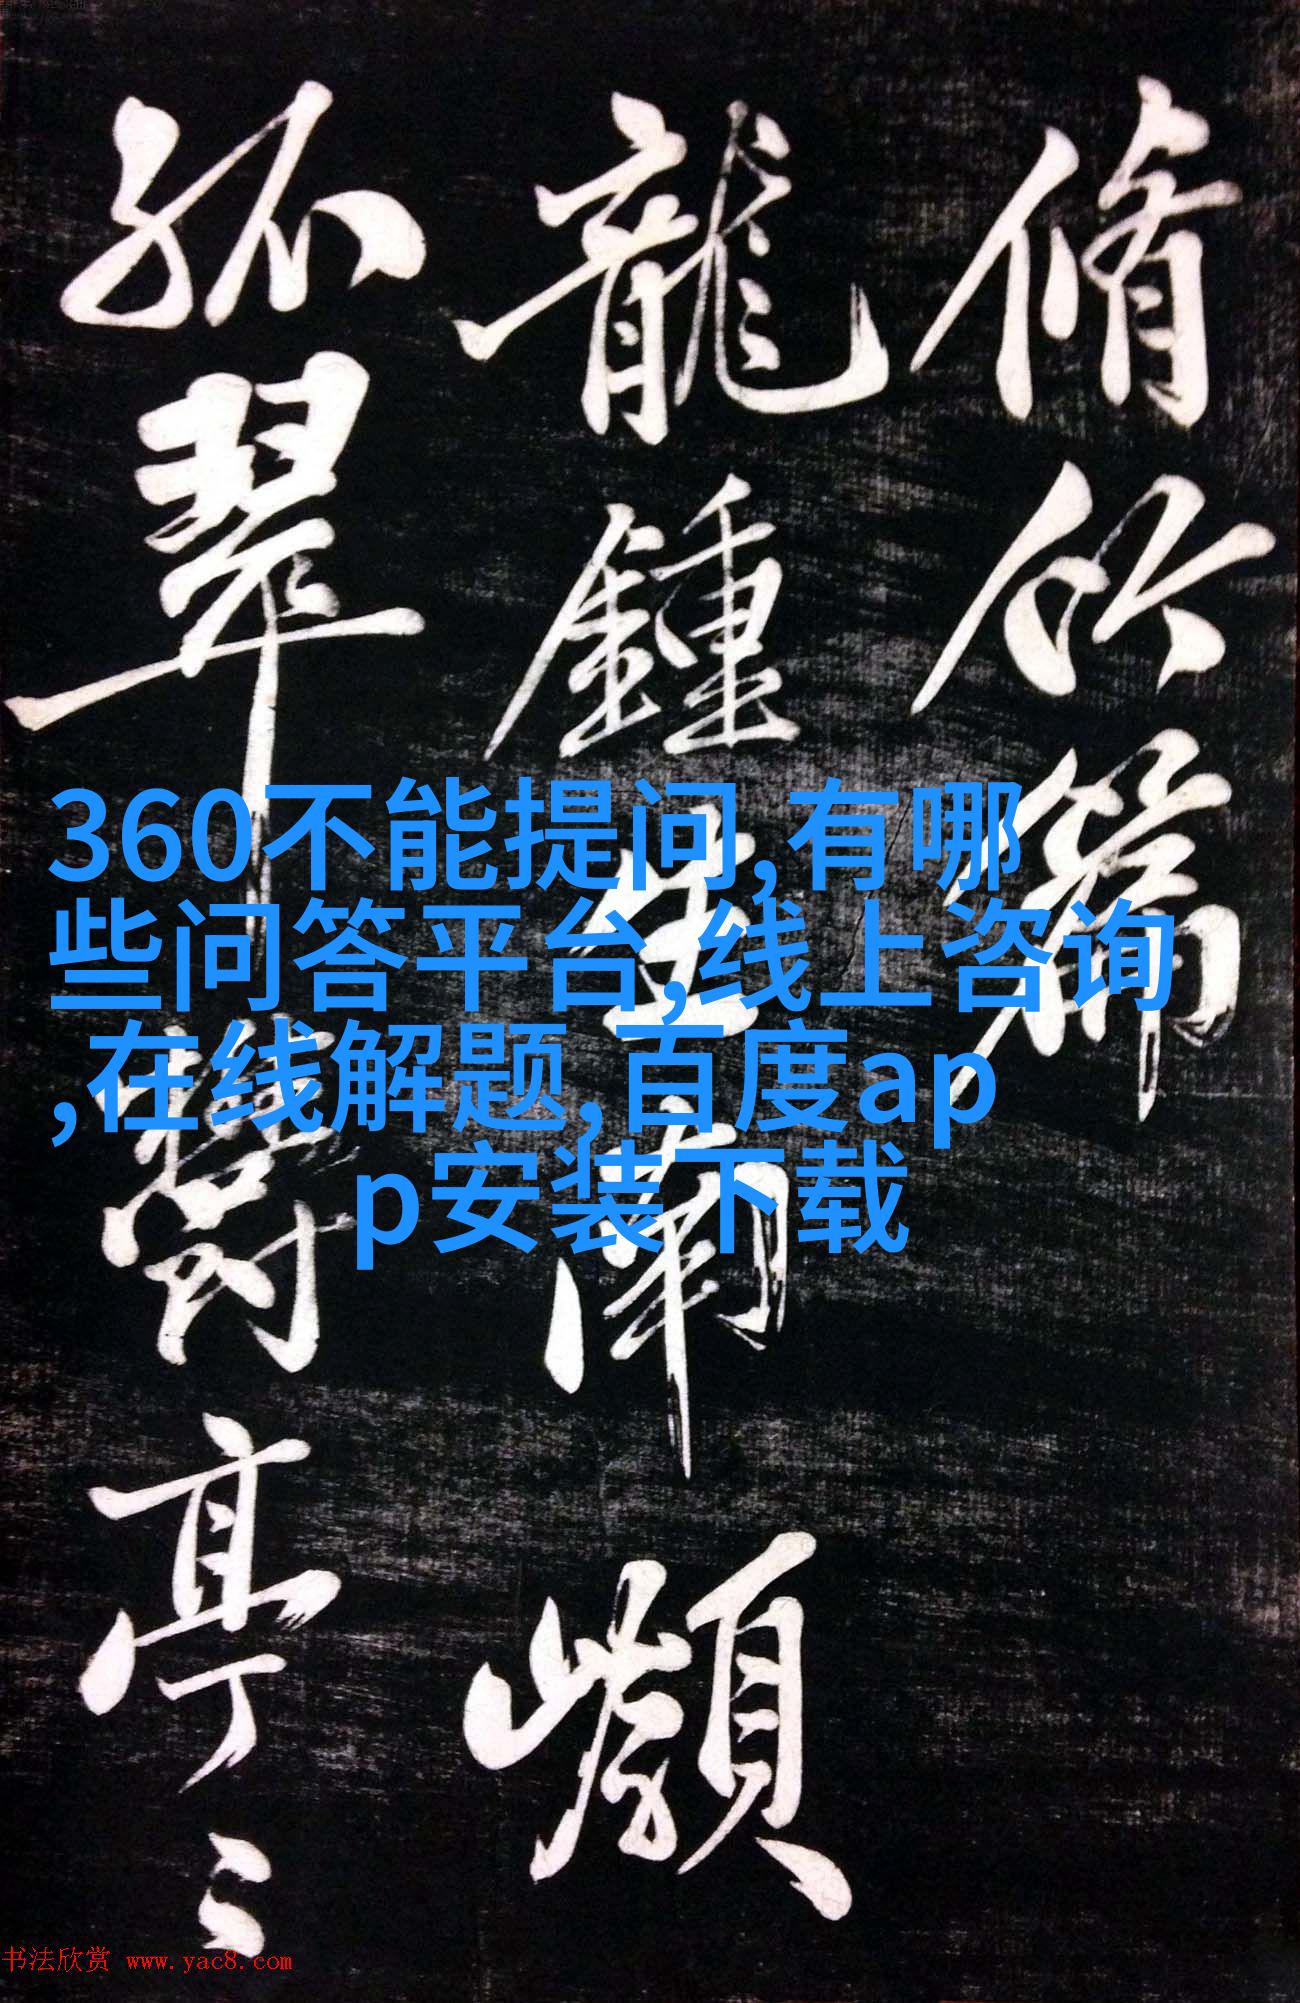 脩竹篇
龍鍾生南
孤翠鬱亭〻
360不能提问,有哪
些问答平台,线上咨询
,在线解题,百度ap
p安装下载
书法欣赏 www.yac8.com